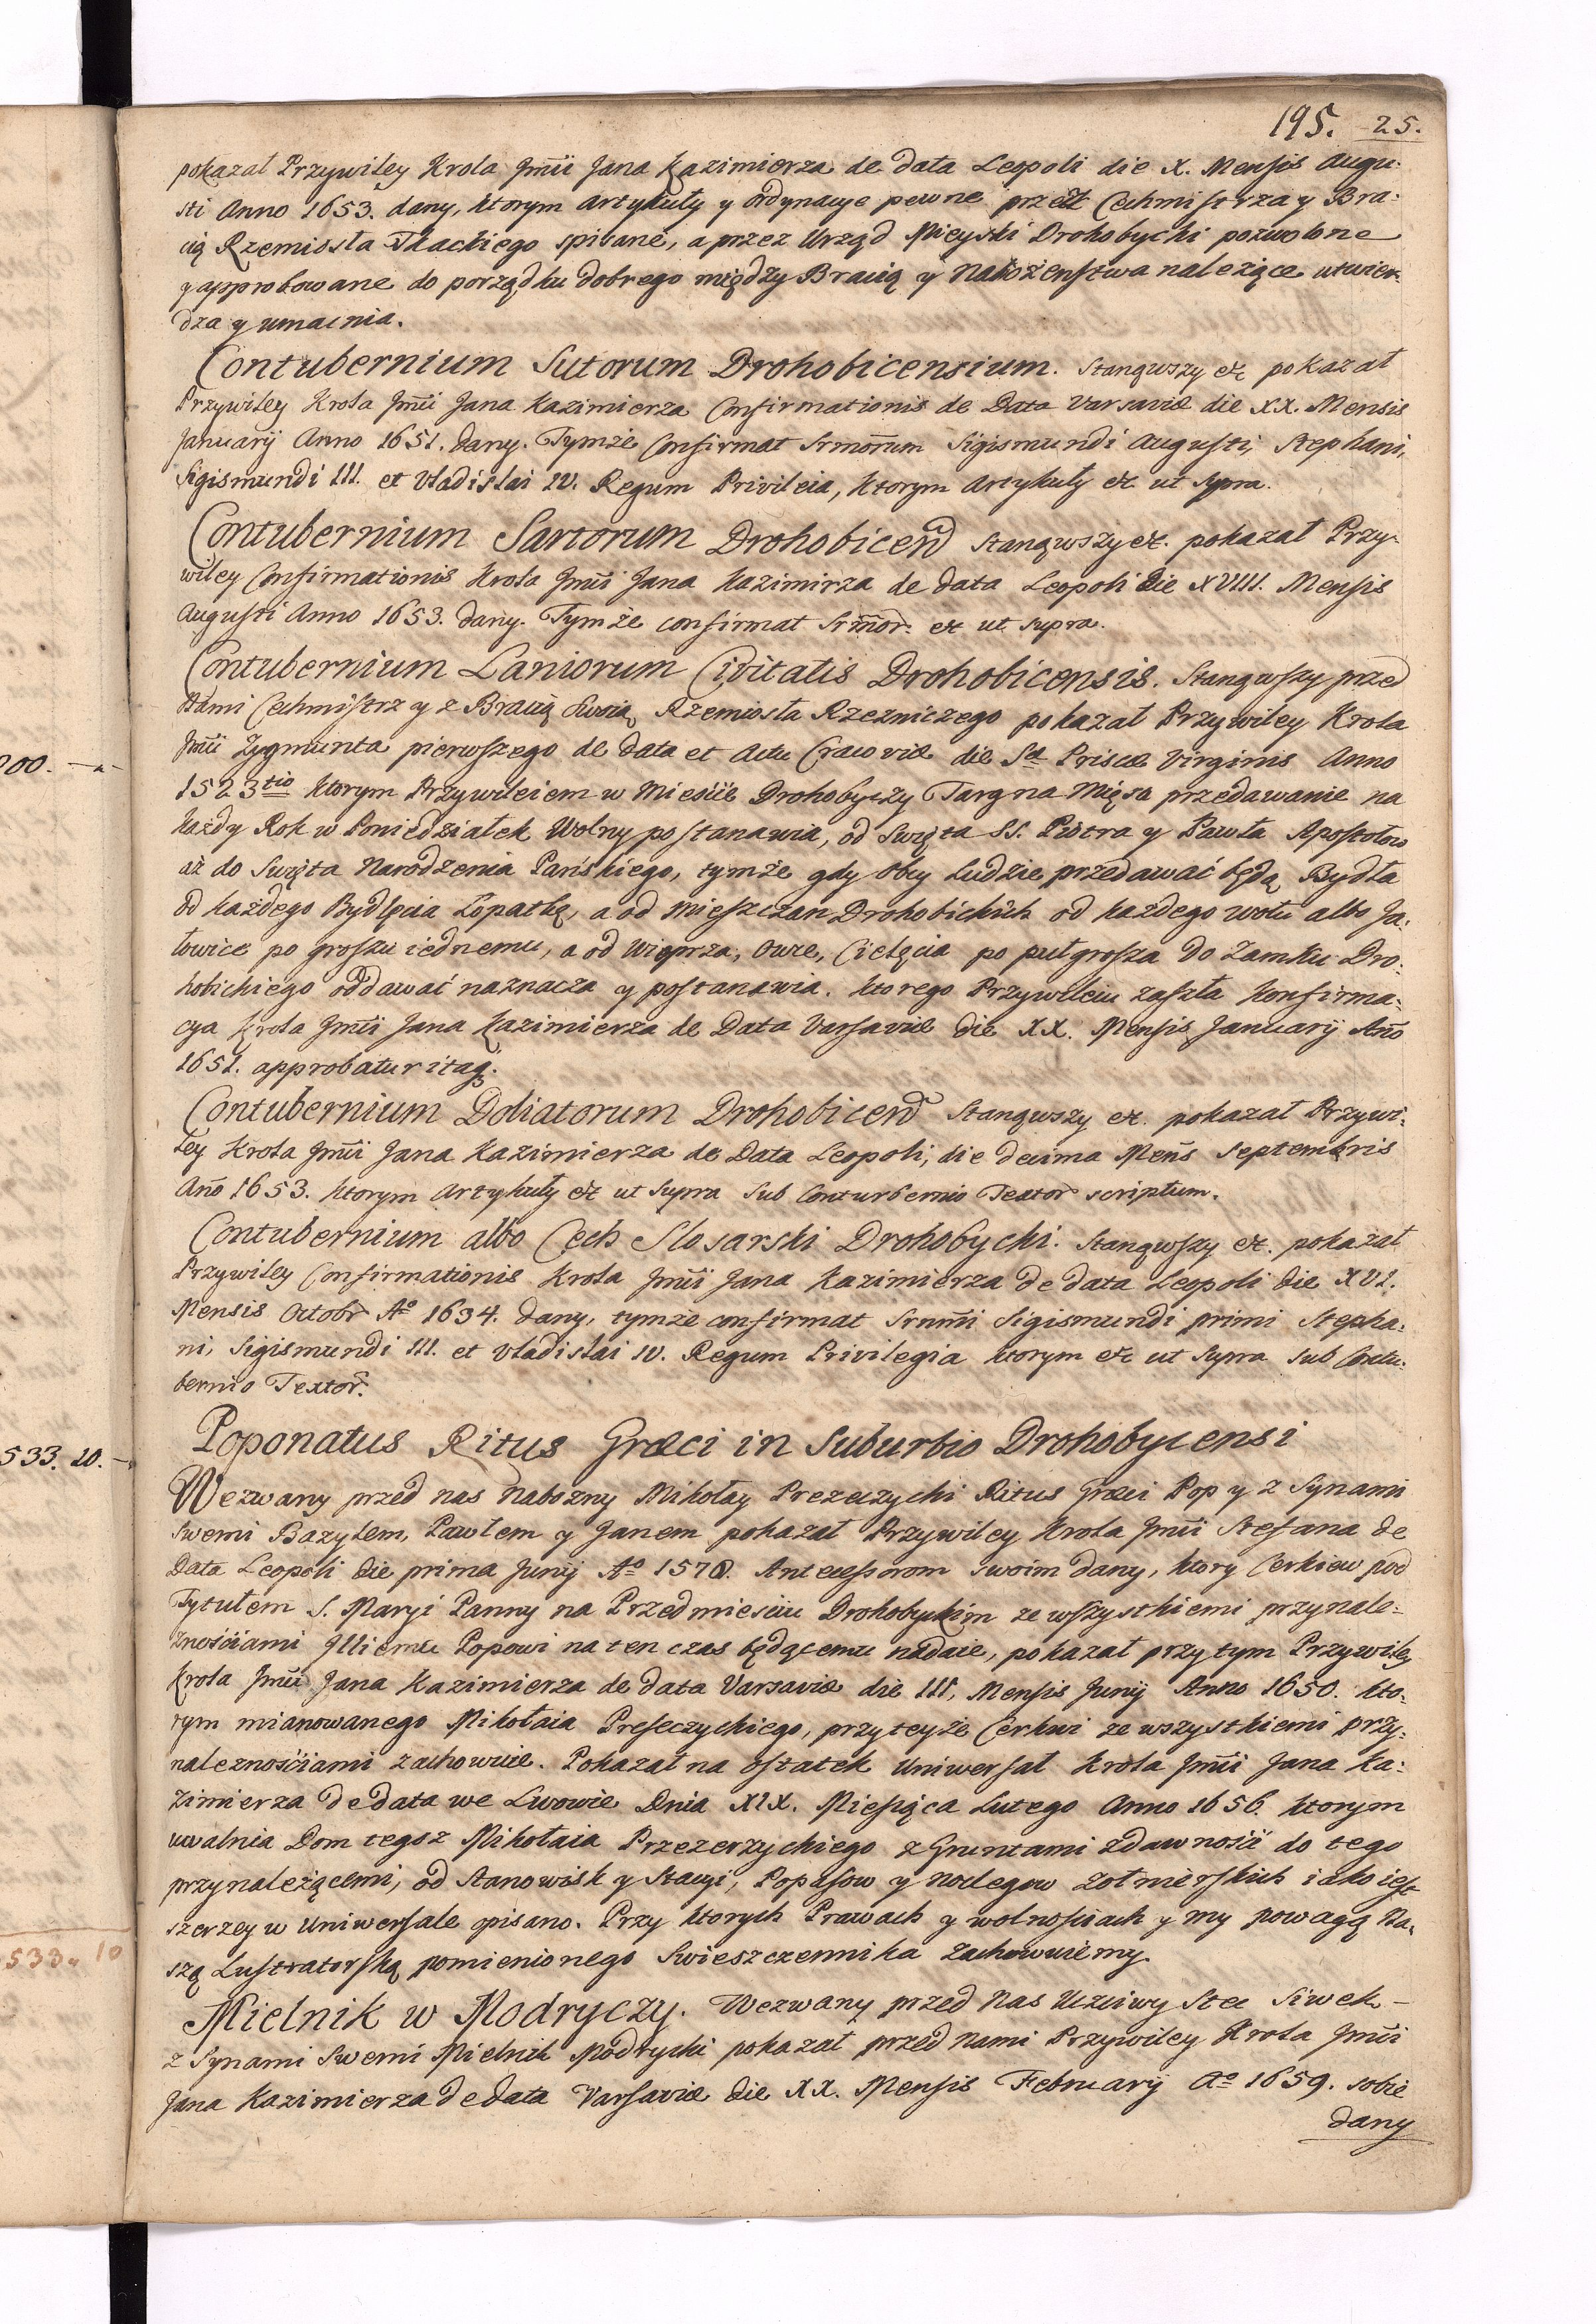 195. 25.
pokazał Przywiley Krola Jmći Jana Kazimierza de data Leopoli die X. Mensis Augu:
sti Anno 1653. dany, ktorym artykuły y ordynacye pewne przez Cechmistrza y Bra:
cią Rzemiosła Tkackiego spisane, a przez Urząd Mieyski Drohobycki pozwolone
y approbowane do porządku dobrego między Bracią y Nabożenstwa należące utwier:
dza y umacnia.
Contubernium Sutorum Drohobicensium. Stanąwszy etc pokazał
Przywiley Krola Jmći Jana Kazimierza Confirmationis de Data Varsaviæ die XX. Mensis
Januarij Anno 1651. dany. Tymże Confirmat Srmōrum Sigismundi Augusti, Stephani,
Sigismundi III. et Vladislai IV. Regum Privileia, ktorym Artykuły etc ut supra.
Contubernium Sartorum Drohobicen̄ Stanąwszy etc. pokazał Przy-
wiley Confirmationis Krola Jmći Jana Kazimirza de data Leopoli die XVIII. Mensis
Augusti Anno 1653. dany. Tymże confirmat Srm̄or: etc ut supra.
Contubernium Laniorum Civitatis Drohobicensis. Stanąwszy przed
Nami Cechmistrz y z Bracią Swoią Rzemiosła Rzezniczego pokazał Przywiley Krola
Jmći Zygmunta pierwszego de data et actu Cracoviæ die Sæ Priscæ Virginis Anno
1523tio ktorym Przywileiem w Mieście Drohobyczy Targ na Mięsa przedawanie na
każdy Rok w Poniedziałek Wolny postanawia, od Swięta SS. Piotra y Pawła Apostołow
aż do Swięta Narodzenia Pańskiego, tymże gdy obcy Ludzie przedawać będą Bydła
od każdego Bydlęcia Łopatkę, a od Mieszczan Drohobickich od każdego wołu albo Ja:
łowice po groszu iednemu, a od Wieprza, Owce, Cielęcia po pułgrosza do Zamku Dro:
hobickiego oddawać naznacza y postanawia. ktorego Przywileiu zaszła Konfirma:
cya Krola Jmći Jana Kazimierza de Data Varsaviæ die XX. Mensis Januarij Año
1651. approbatur itaq;.
Contubernium Doliatorum Drohobicen̄ Stanąwszy etc. pokazał Przywi:
ley Krola Jmći Jana Kazimierza de Data Leopoli, die decima Meñs Septembris
Año 1653. ktorym Artykuły etc ut supra sub Conturbernio Textor scriptum.
Contubernium albo Cech Slosarski Drohobycki. Stanąwszy etc. pokazał
Przywiley Confirmationis Krola Jmći Jana Kazimierza de data Leopoli die XVI.
Mensis Octobr Aº 1634. dany, tymże confirmat Srnm̄i Sigismundi primi Stepha:
ni, Sigismundi III. et Vladislai IV. Regum Privilegia ktorym etc ut supra sub Contu:
bernio Textor̄.
Poponatus Ritus Græci in Suburbio Drohobycensi
Wezwany przed nas Nabozny Mikołay Prezeczycki Ritus Græci Pop y z Synami
swemi Bazylem, Pawłem y Janem pokazał Przywiley Krola Jmći Stefana de
Data Leopoli die prima Junij Aº 1578. Antecessorom swoim dany, ktory Cerkiew pod
Tytułem S. Maryi Panny na Przedmiesciu Drohobyckim ze wszystkiemi przynale:
znościami Jlliemu Popowi na ten czas będącemu nadaie, pokazał przytym Przywiley
Krola Jmći Jana Kazimierza de data Varsaviæ die III. Mensis Junij Anno 1650. kto:
rym mianowanego Mikołaia Preseczyckiego, przy teyże Cerkwi ze wszystkiemi przy:
naleznościami zachowuie. Pokazał na ostatek Uniwersał Krola Jmći Jana Ka:
zimierza de data we Lwowie Dnia XIX. Miesiąca Lutego Anno 1656. ktorym
uwalnia Dom tegoz Mikołaia Przezerzyckiego z Gruntami zdawność do tego
przynależącemi, od Stanowisk y Stacyi, Popasow y Noclegow Zołnierskich iako iest
szerzey w Uniwersale opisano. Przy ktorych Prawach y wolnościach y my powagą Na:
szą Lustratorską pomienionego Swieszczennika Zachowuiemy.
Mielnik w Modryczy. Wezwany przed Nas Uczciwy Stec Siwek –
z Synami Swemi Mielnik Modrycki pokazał przed Nami Przywiley Krola Jmći
Jana Kazimierza de data Varsaviæ die XX. Mensis Februarij Aº 1659. sobie
dany
00. –
533. 10. –
533. 10